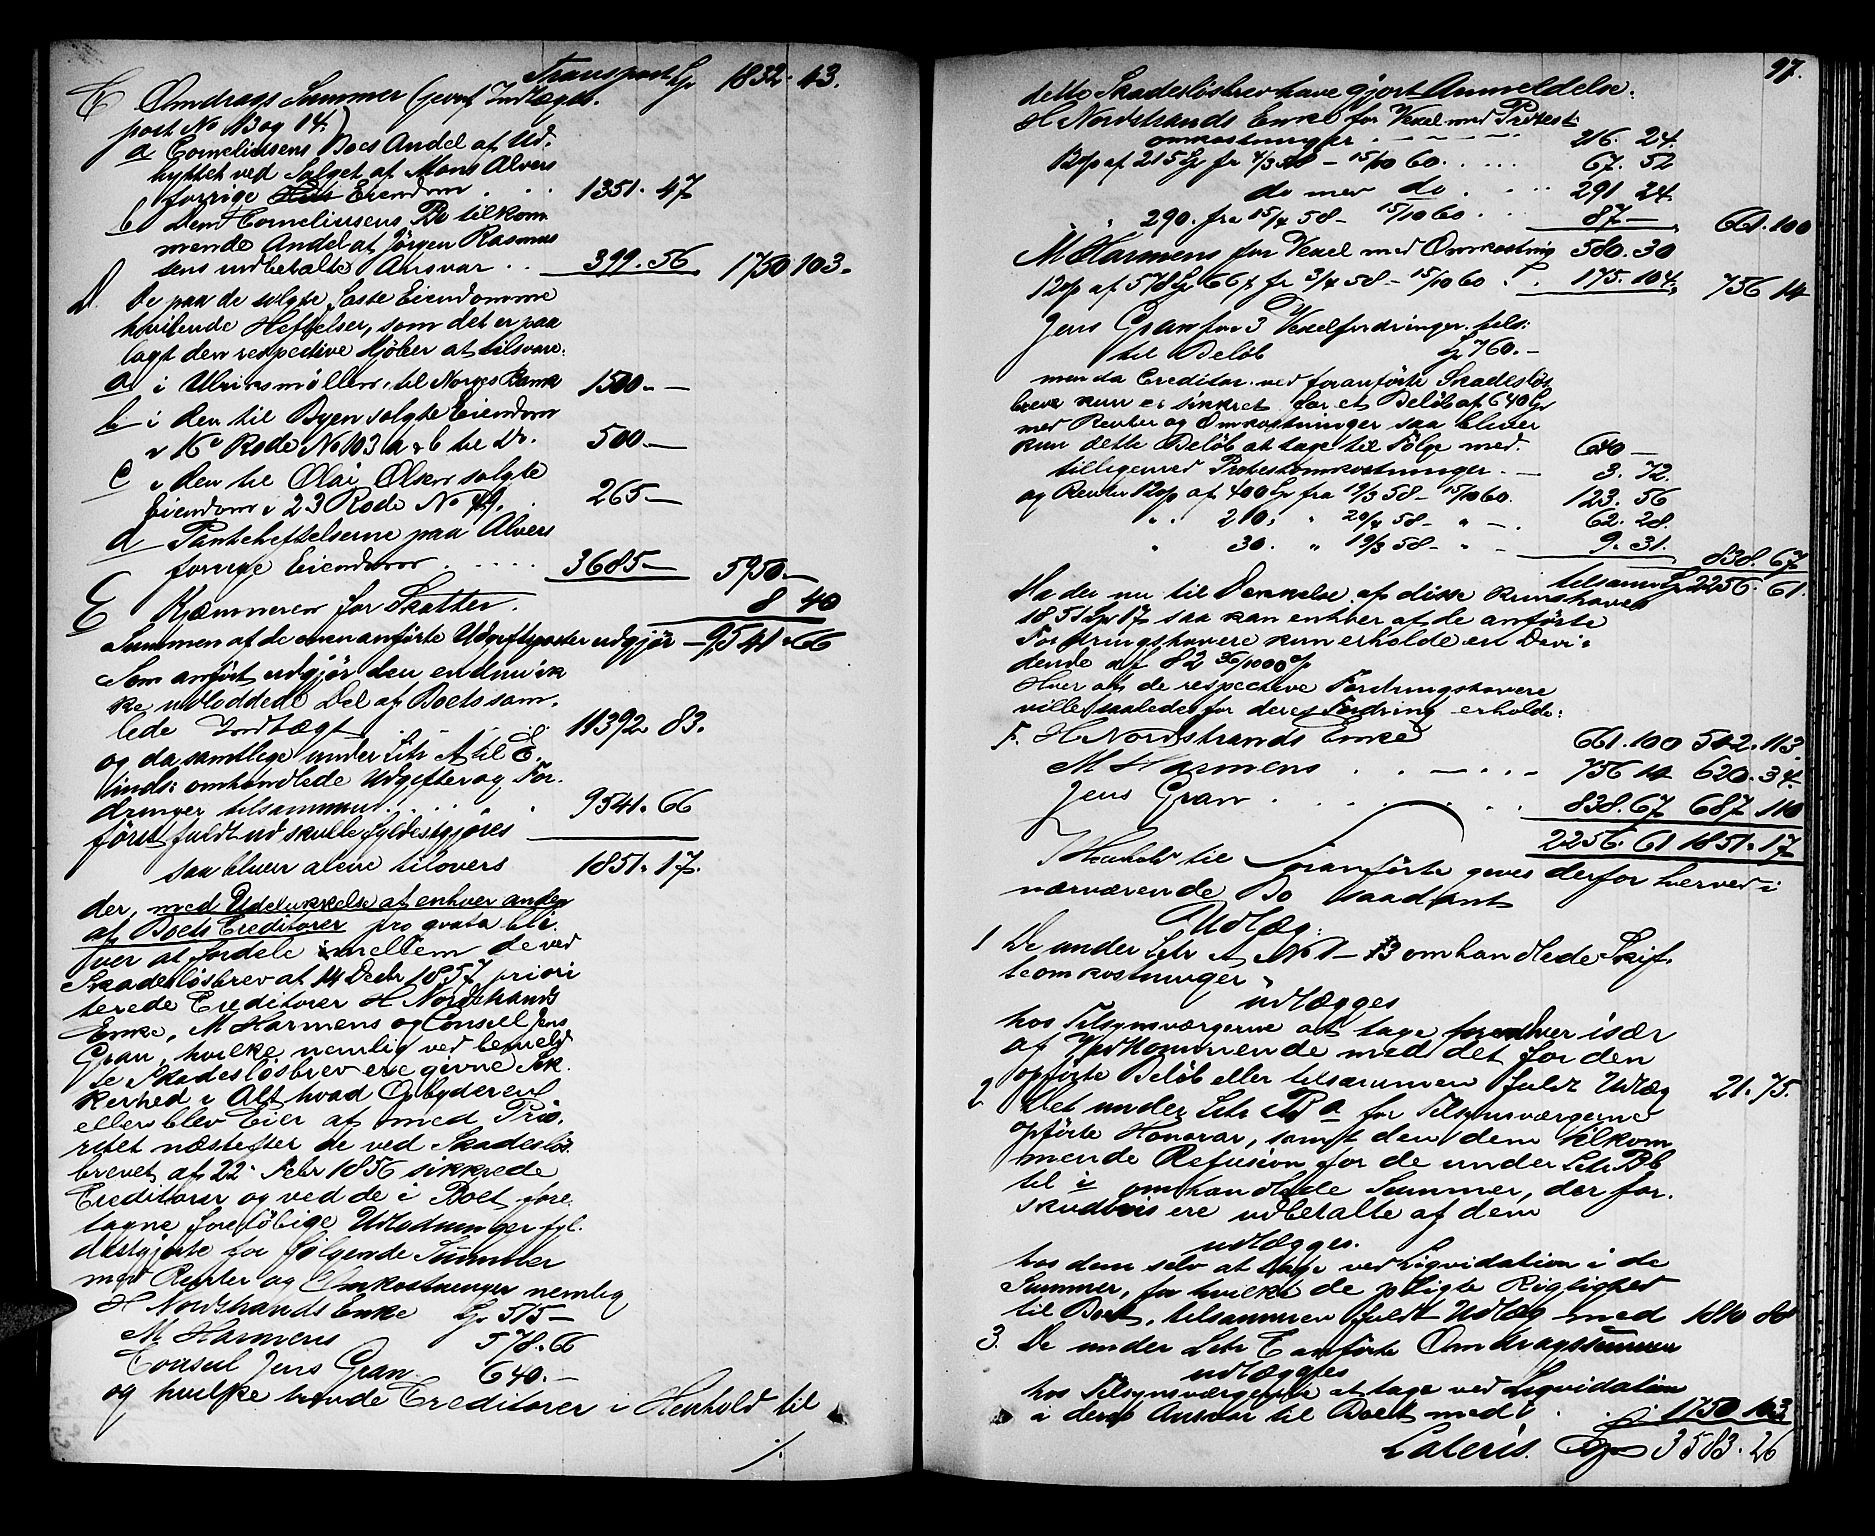 Transport Spd 1832. 43.
C Omdrags Summer (jevnf Indtægts.
post No 13 og 14.)
a Corneliusens Boes Andel af Ud.
byttet ved Salget af Mons Alvers
forrige Eiendom . . . 1351. 47
b Den Corneliusens Bo tilkom
mende Andel af Jørgen Rasmus
sens udbetalte Ansvar . . 399. 56 1750 103.
D. De paa de solgte faste Eiendomme
hvilende Heftelser, som det er paa
lagt den respective Kjøber at tilsvare.
a i Ulriksmøllen, til Norges Bank 1500. —
b i den til Byen solgte Eiendom
i Rode No 103 a & b til Do. 500. —
c i den til Olai Olsen solgte
Eiendom i 23 Rode No 49. . 265 —
d Panteheftelserne paa Alvers
forrige Eiendomme . . . . . 3685 — 5950 —
E Kjæmneren for Skatter. 8 40
Summen af de ovenanførte Udgiftsposter udgjør — 9541. 66
Som anført udgjør den endnu ik
ke udloddede Del af Boets sam.
lede Indtægt . . . . 11392 83.
og da samtlige under Litr A til E
incls: omhandlede Udgifter og For.
dringer tilsammen . . . . 9541. 66
først fuldt ud skulle fyldestgjøres
saa bliver alene tilovers 1851. 17.
der, med Udelukkelse af enhver anden
af Boets Creditorer pro qvota bli.
ver at fordele imellem de ved
Skadesløsbrev af 14 Decbr 1857 priori
terede Creditorer H Nordstrands
Enke, M Harmens og Consul Jens
Gran, hvilke nemlig ved bemeld
te Skadesløsbrev ere givne Sik.
kerhed i Alt hvad Opbyderen
eller blev Eier af med Prio.
ritet næstefter de ved Skadesløs.
brevet af 22 Febr 1856 sikkrede
Creditorer og ved de i Boet fore.
tagne foreløbige Udlodninger fyl.
destgjorte for følgende Summer
med Renter og Omkostninger nemlig
H Nordstrands Enke Spd 515 —
M Harmens 578. 66
Consul Jens Gran. 640. —
og hvilke trende Creditorer i Henhold til
97.
dette Skadesløsbrev have gjort Anmeldelse:
H Nordstrands Enke for Vexel med Protest
omkostninger . . . . . 216. 24.
12 % af 215 Spd fr 4/3 58 — 15/10 60. . . . 67. 52
do med do . . . 291. 24.
" " 290. fra 15/4 58 — 15/10 60 . . . 87 — 661. 100
M Harmens for Vexel med Omkostning 580. 30
12 % af 578 Spd 66 s fr 3/4 58 — 15/10 60 . . 175. 104. 756 14
Jens Gran for 3 Vexelfordringer. tils:
til Beløb Spd 760. —
men da Creditor. ved foranførte Skadesløs
brev kun er sikkret for et Beløb af 640 Spd
med Renter og Omkostninger saa bliver
kun dette Beløb at tage til Følge med. 640 —
tilligemed Protestomkostninger. — 3. 72.
og Renter 12 % af 400 Spd fra 19/3 58 — 15/10 60. 123. 56
" " 210. " 20/4 58 — " — . 62. 28.
" 30. " 19/3 58 — " — 9. 31. 838. 67
tilsamn Spd 2256. 61.
Da der nu til Dækkelse af disse kun haves
1851 Spd 17 saa kan enhver af de anførte
Fordringshavere kun erholde en Divi.
dende af 82 36/1000 %
Hver af de respective Fordringshavere
ville saaledes for deres Fordring erholde:
F. H Nordstrands Enke 661. 100 542. 113.
M Harmens . . — . . . 756 14 620. 34.
Jens Gran . . . . . . . 838. 67 687 110
2256. 61 1851. 17
I Henhold til Foranførte gives derfor herved i
nærværende Bo saadant
Udlæg:
1 De under Litr A No 1 — 13 omhandlede Skif.
teomkostninger
udlægges
hos Tilsynsværgerne at tage for enhver især
af Vedkommende med det for den
opførte Beløb eller tilsammen fuldt Udlæg 21. 75.
2 Det under Litr B a for Tilsynsværgerne
opførte Honorar, samt den dem tilkom
mende Refusion for de under Litr B b
til i omhandlede Summer, der for.
skudsvis ere udbetalte af dem
udlægges.
hos dem selv at tage ved Liquidation i de
Summer, for hvilke de pligte Rigtighed
til Boet, tilsammen fuldt Udlæg med 1810 80
3. De under Litr C anførte Omdragssummer
udlægges
hos Tilsynsværgerne at tage ved Liquidation
i deres Ansvar til Boet med . . . . 1750 103
Lateris. Spd 3583. 26